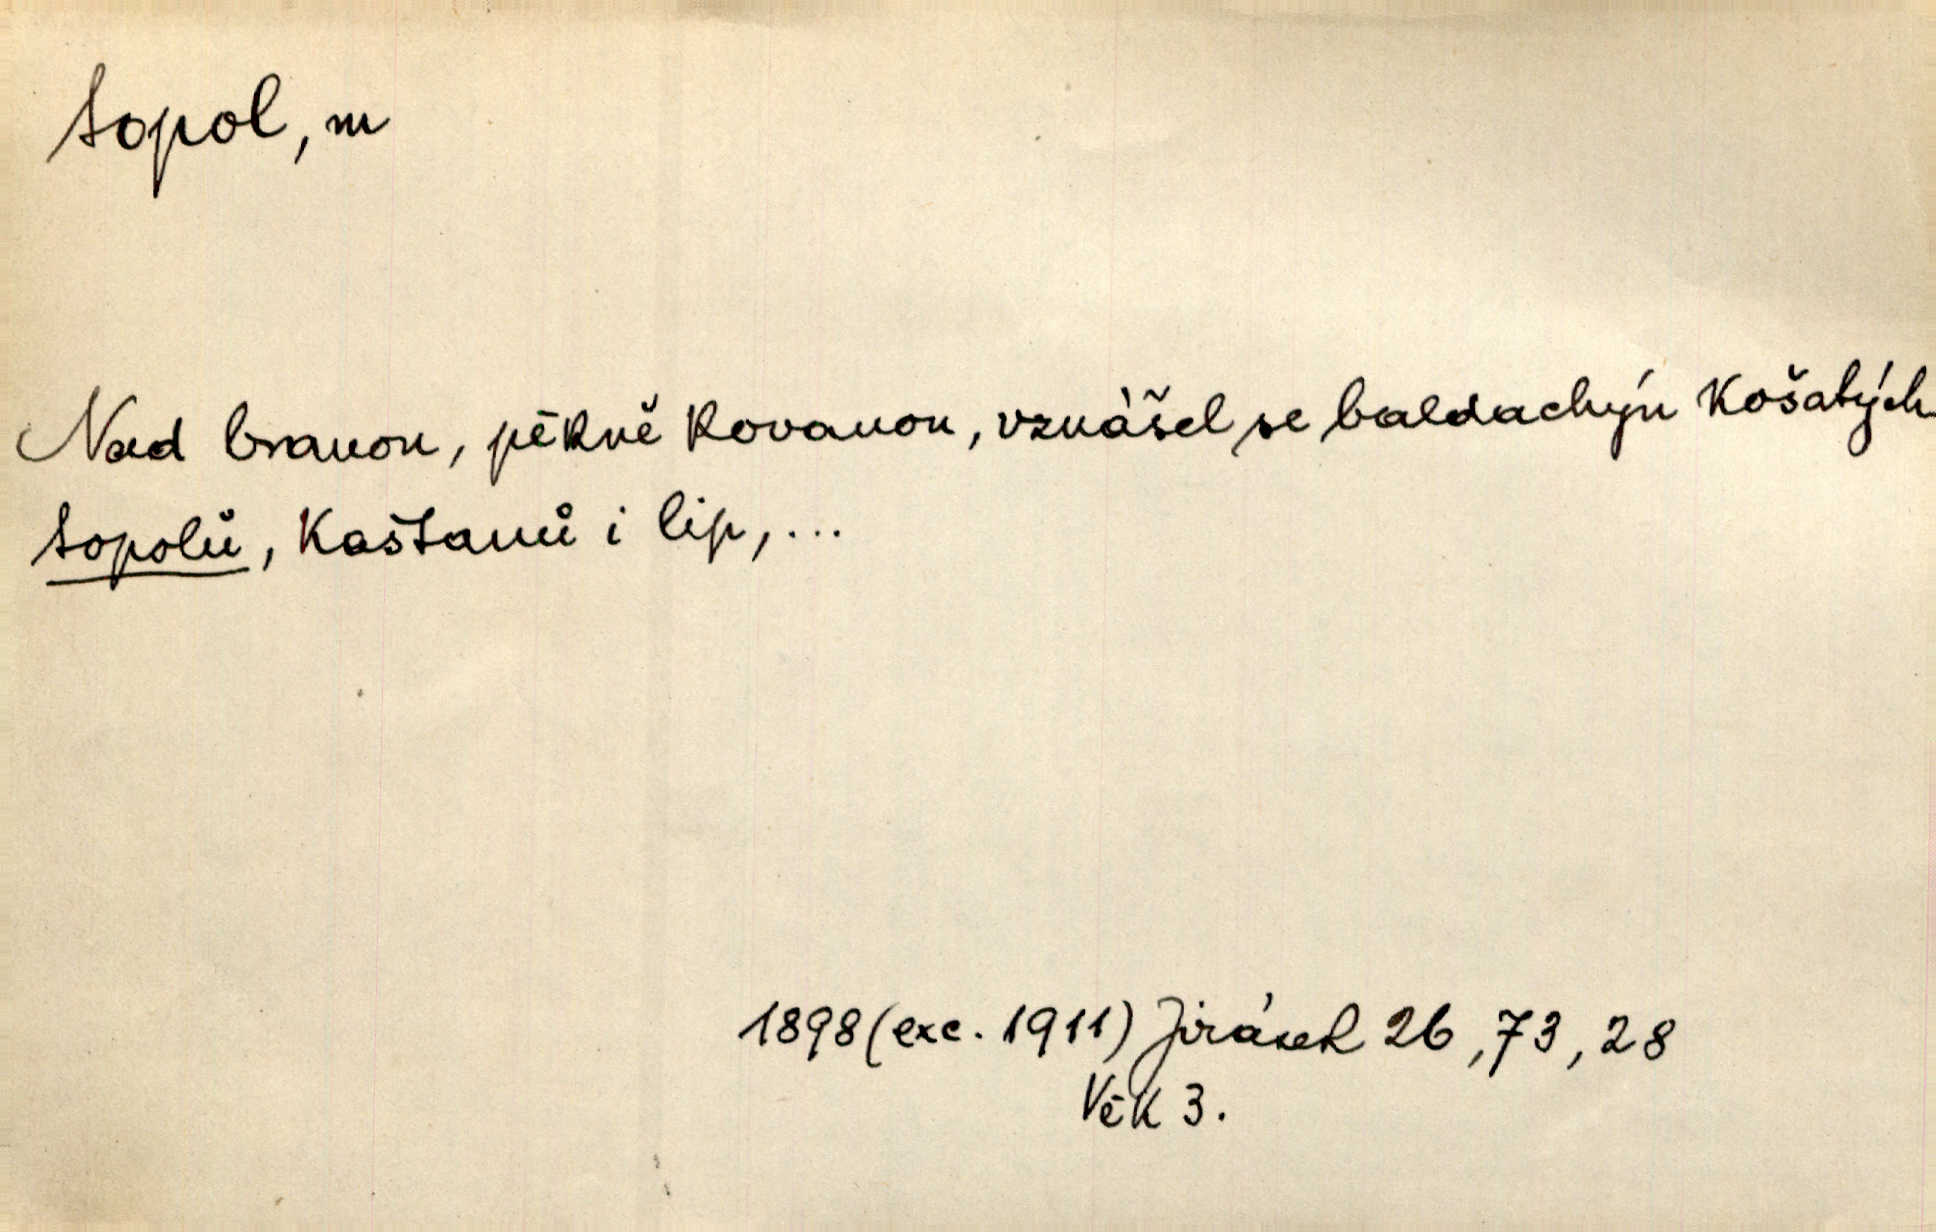 topol, m
Nad branou, pěkně kovanou, vznášel se baldachýn košatých
topolů, kaštanů i lip, ...
1898 (exc. 1911) Jirásek 26, 73, 28
Věk 3.